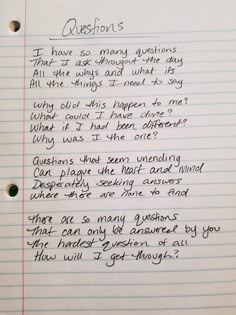 Questions
I have so many questions
That I ask througout the day
All the whys and what ifs
All the things I need to say
Why did this happen to me?
What could I have done?
What if I had been different?
Why was I the one?
Questions that seem unending
Can plague the heart and mind
Desperately seeking answers
Where there are none to find
There are so many questions
That can only be answered by you
The hardest question of all
How will I get through?